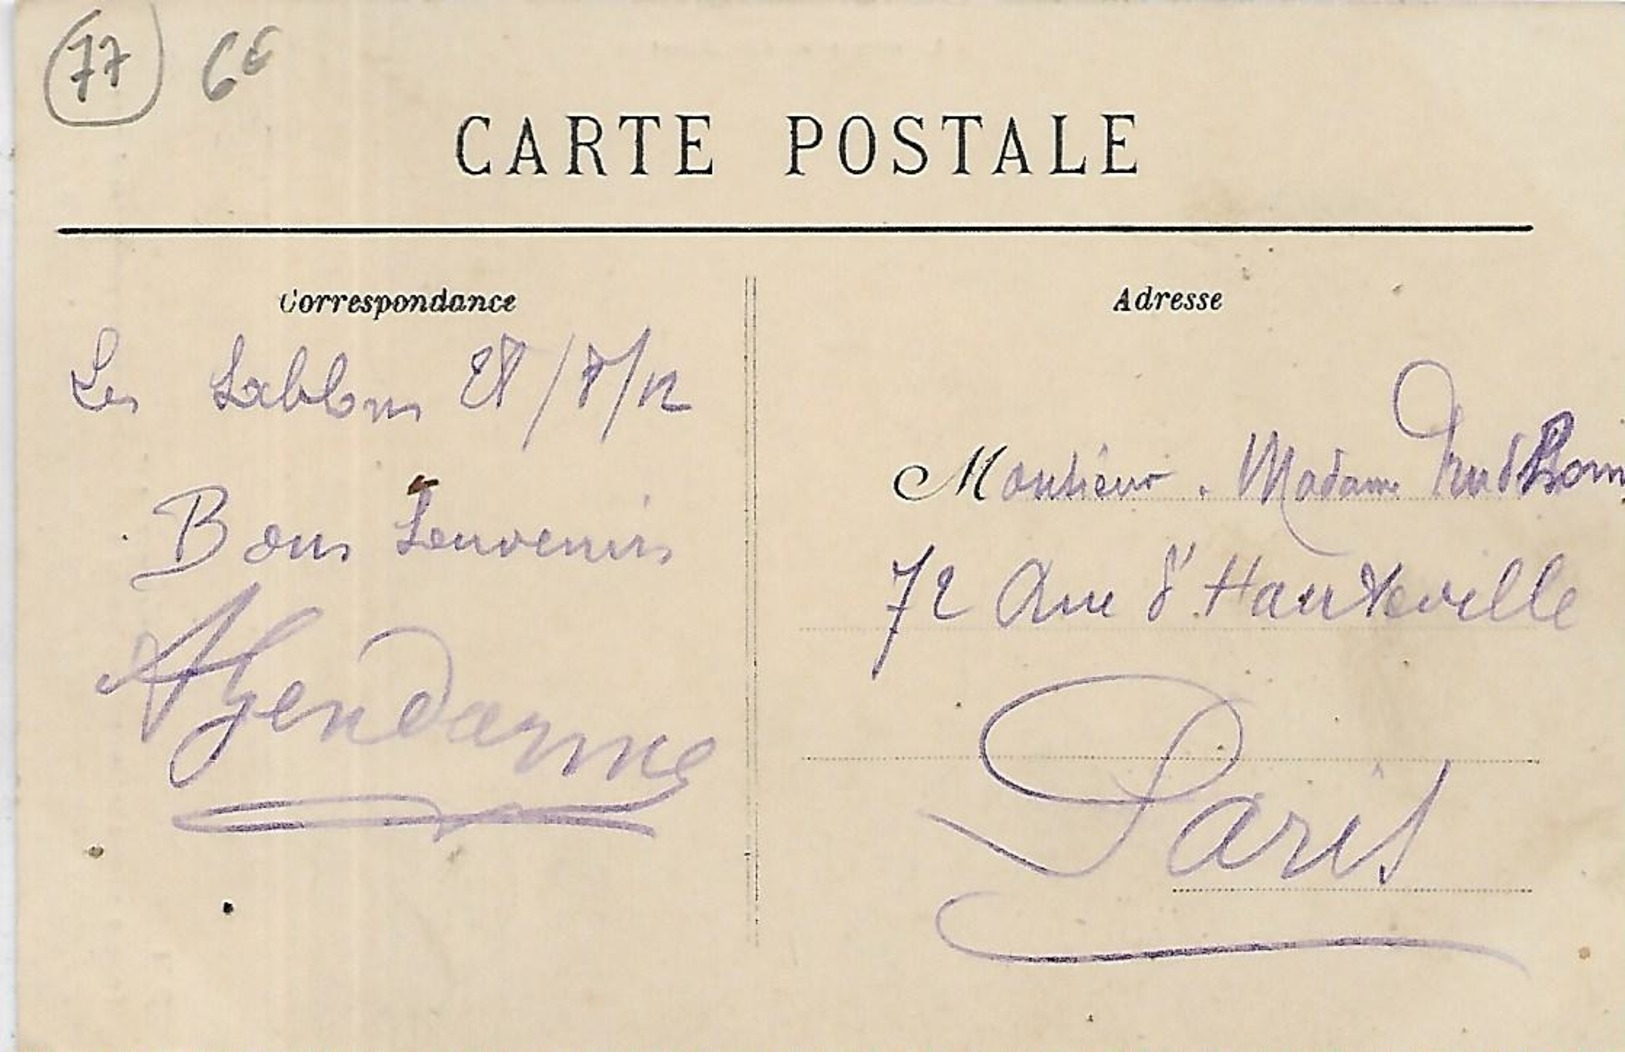 77 6€
CARTE POSTALE
Correspondance
Les Sablons 28/8/12
Bons Souvenirs
AGendarme
Adresse
Monsieur. Madame Prudhom
72 Rue d'Hauteville
Paris